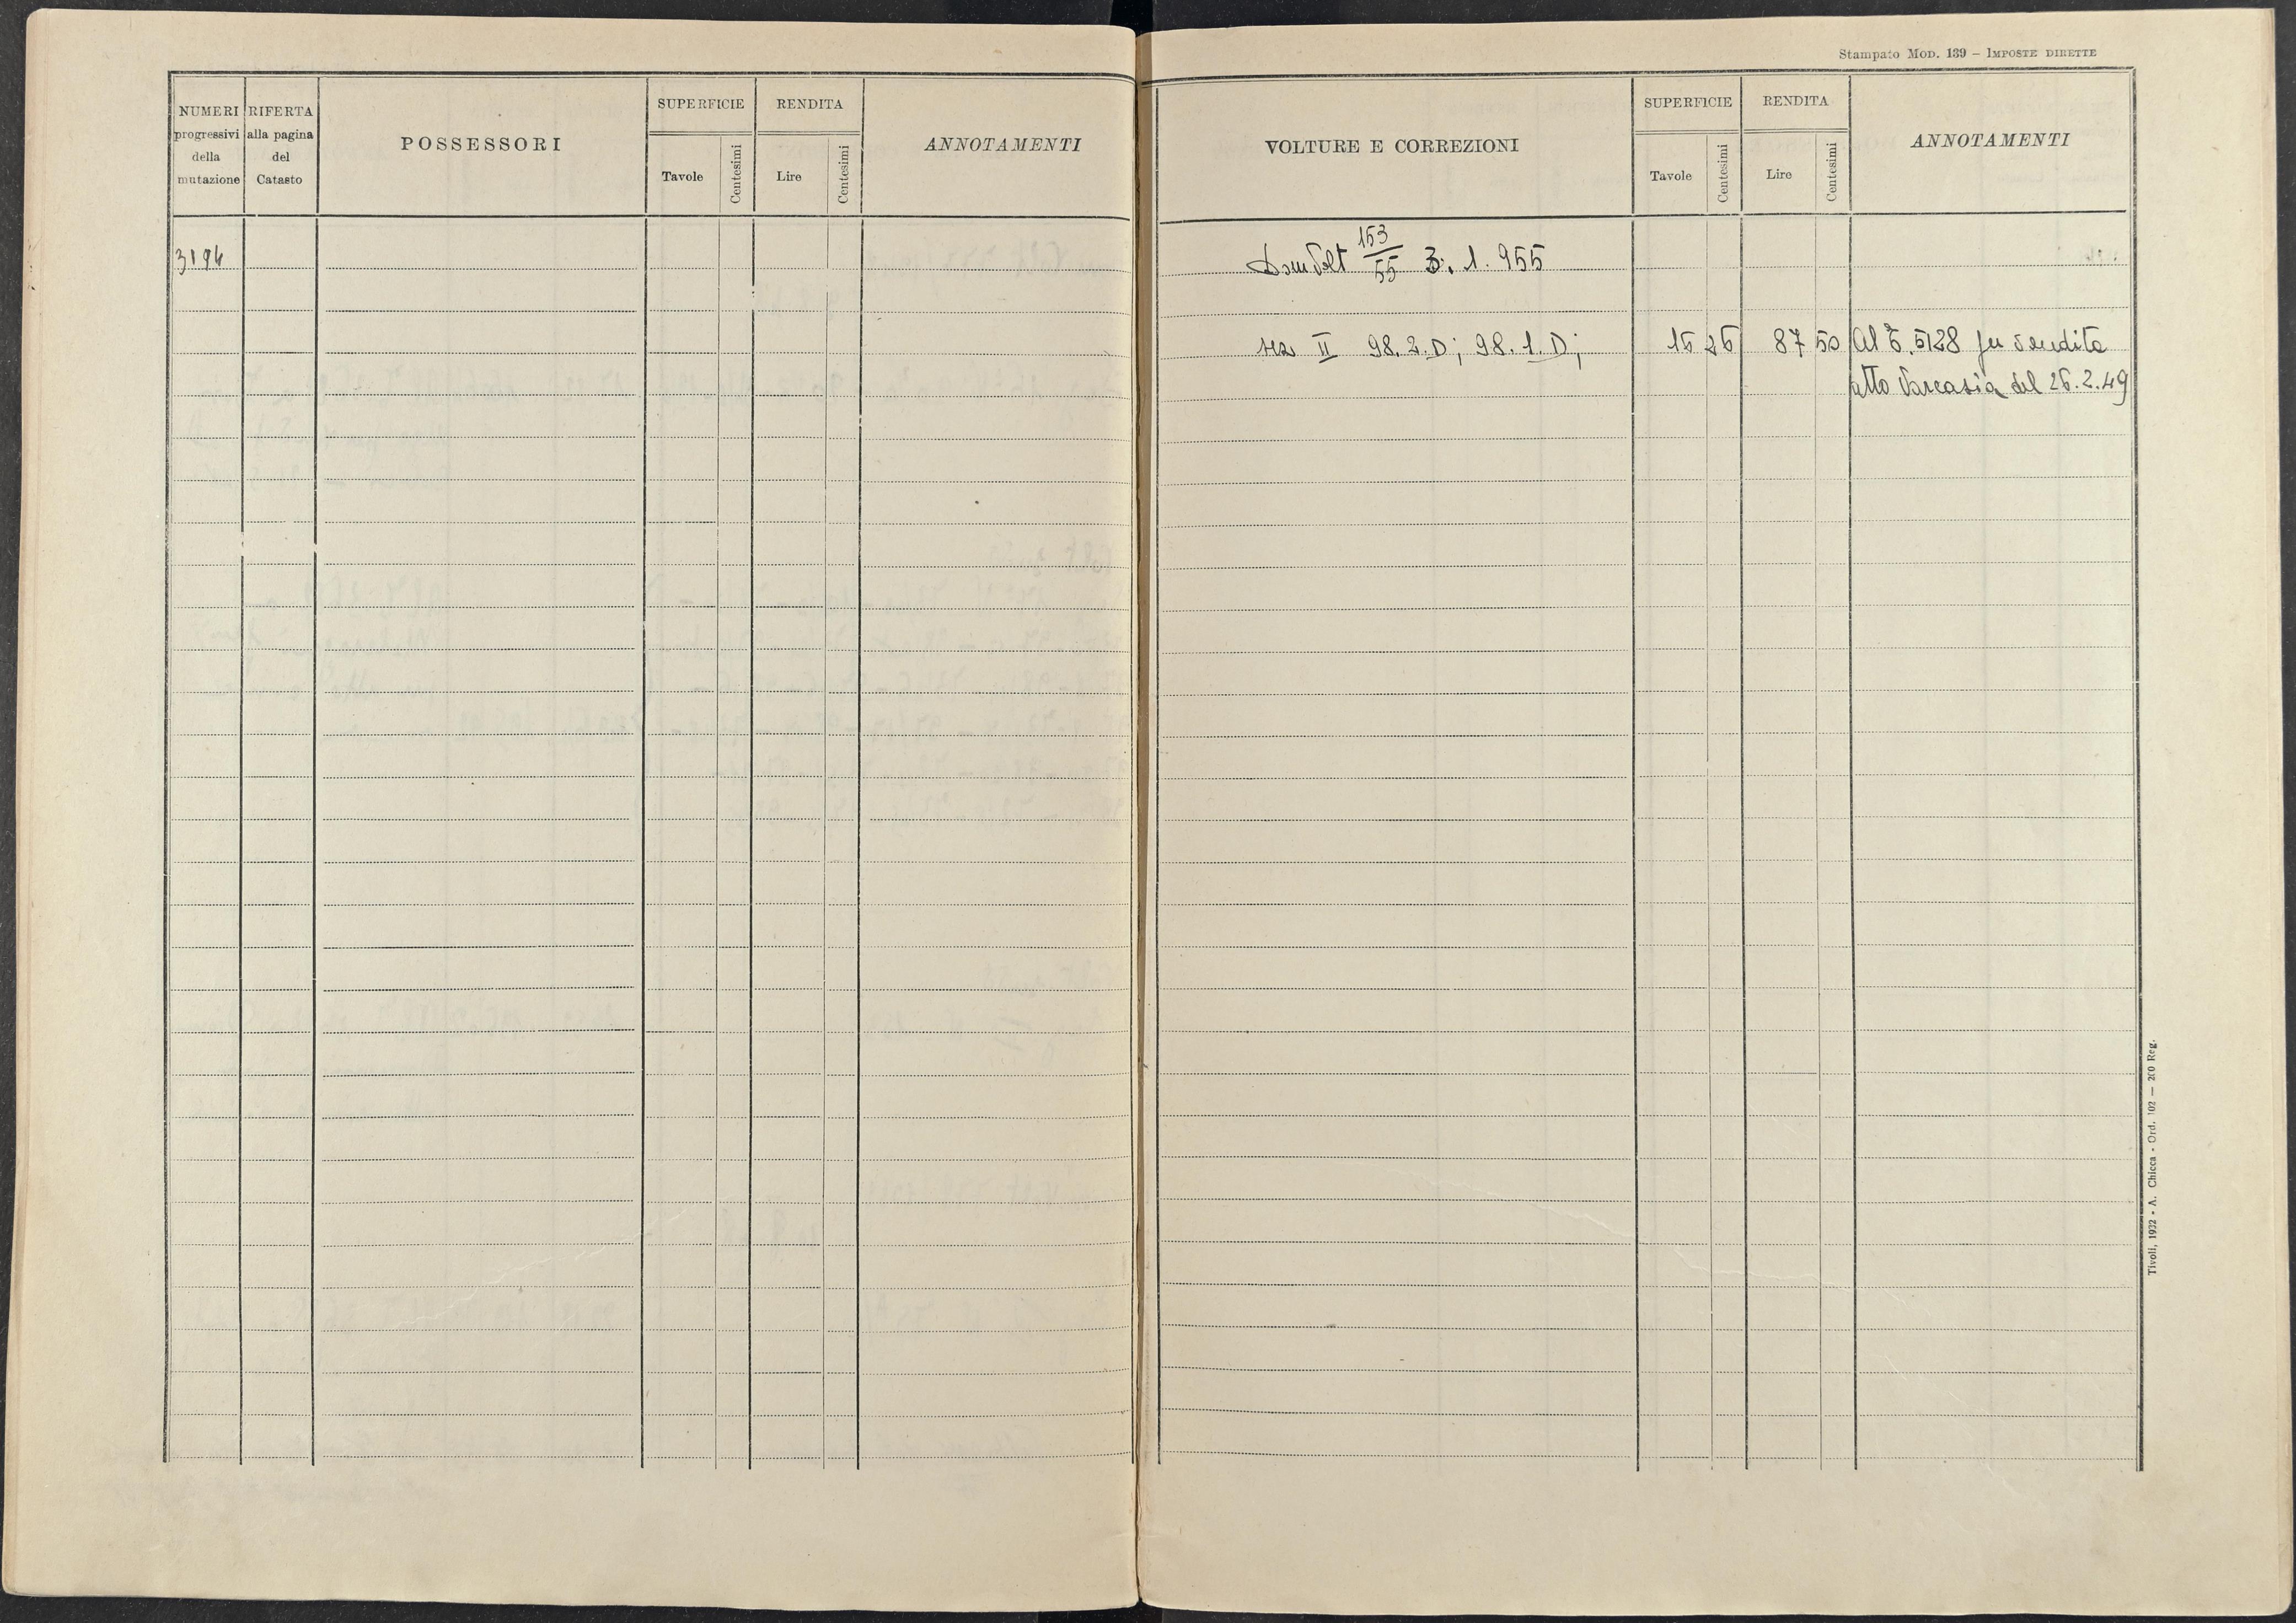 Stampato MOD. 139 — IMPOSTE DIRETTE
NUMERI progressivi della mutazione
RIFERTA alla pagina del Catasto
POSSESSORI
SUPERFICIE
Tavole
Centesimi
RENDITA
Lire
Centesimi
ANNOTAMENTI
VOLTURE E CORREZIONI
SUPERFICIE
Tavole
Centesimi
RENDITA
Lire
Centesimi
ANNOTAMENTI
3194
153/55 3. 1. 955
sez II 98. 2. D; 98. 1. D; 15 25 87 50 Al 5128 per vendita
atto Varcasia del 26.2.49
Tivoli, 1932 - A. Chicca - Ord. 102 — 200 Reg.